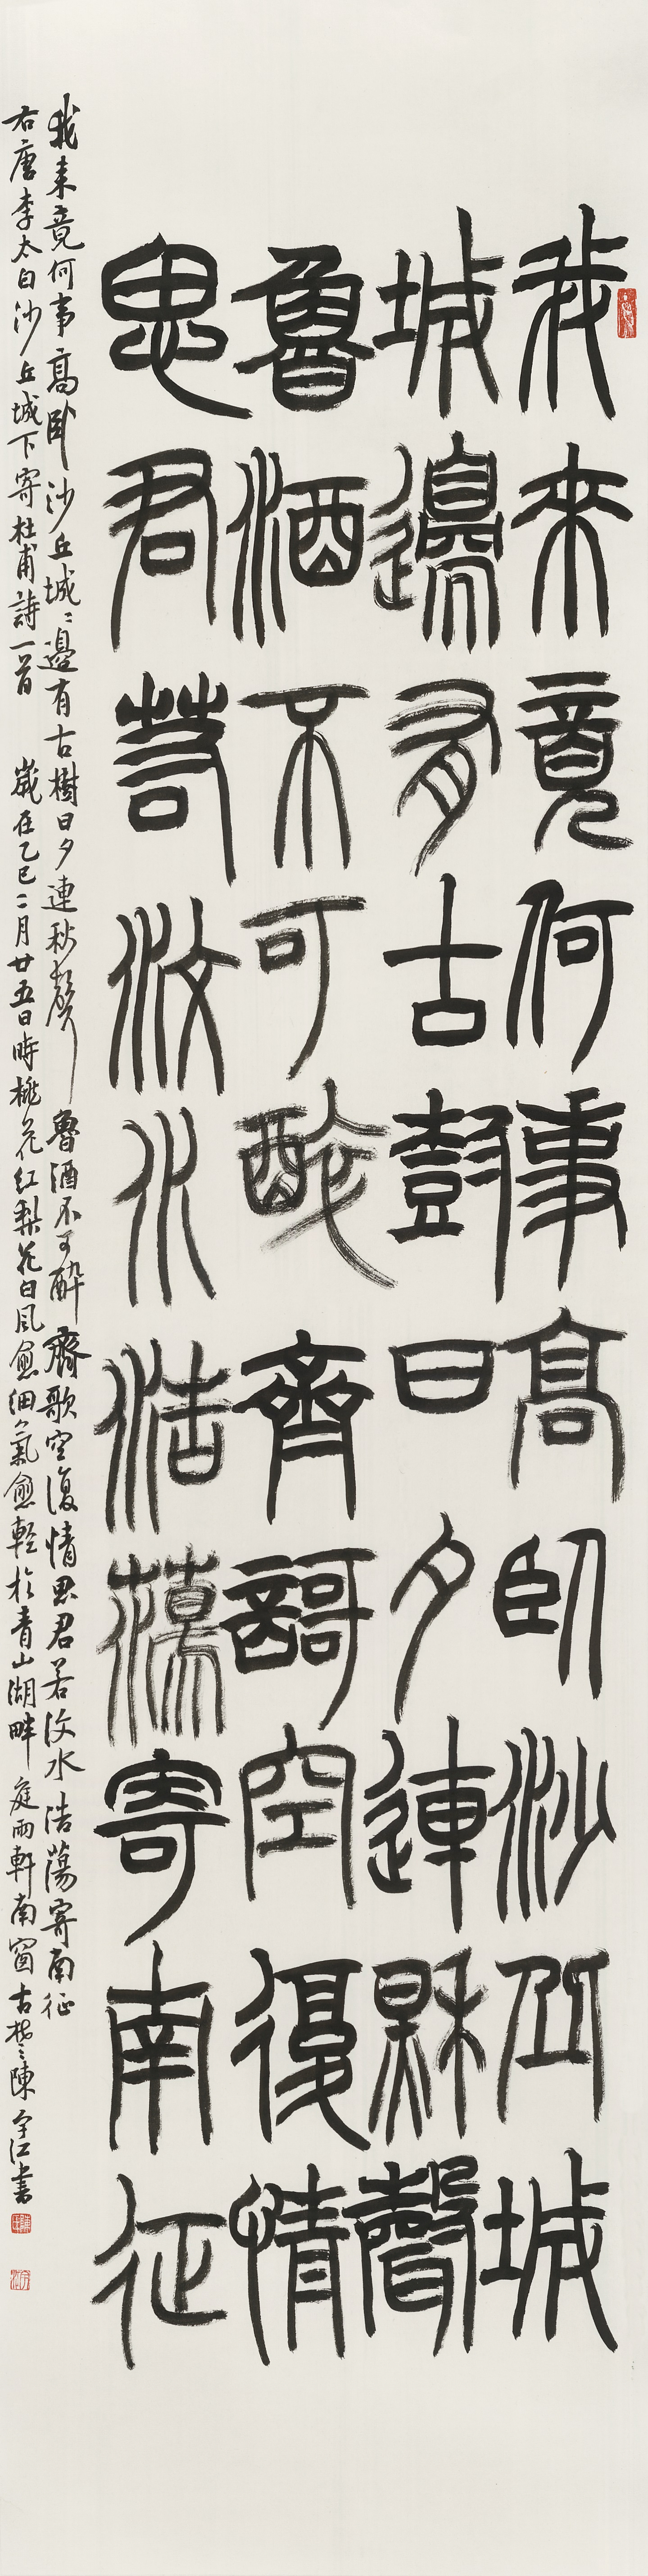 我来竟何事高臥沙丘城
城邊有古尌日夕連秌聲
魯酒不可醉齊謌空復情
思君若汶水浩蕩寄南征
我来竟何事高卧沙丘城〻邊有古樹日夕連秋聲魯酒不可醉齊歌空復情思君若汶水浩蕩寄南征
右唐李太白沙丘城下寄杜甫詩一首 歲在乙巳二月廿五日時桃花紅梨花白風愈細氣愈輕於青山湖畔庭雨軒南窗古楚陳江书